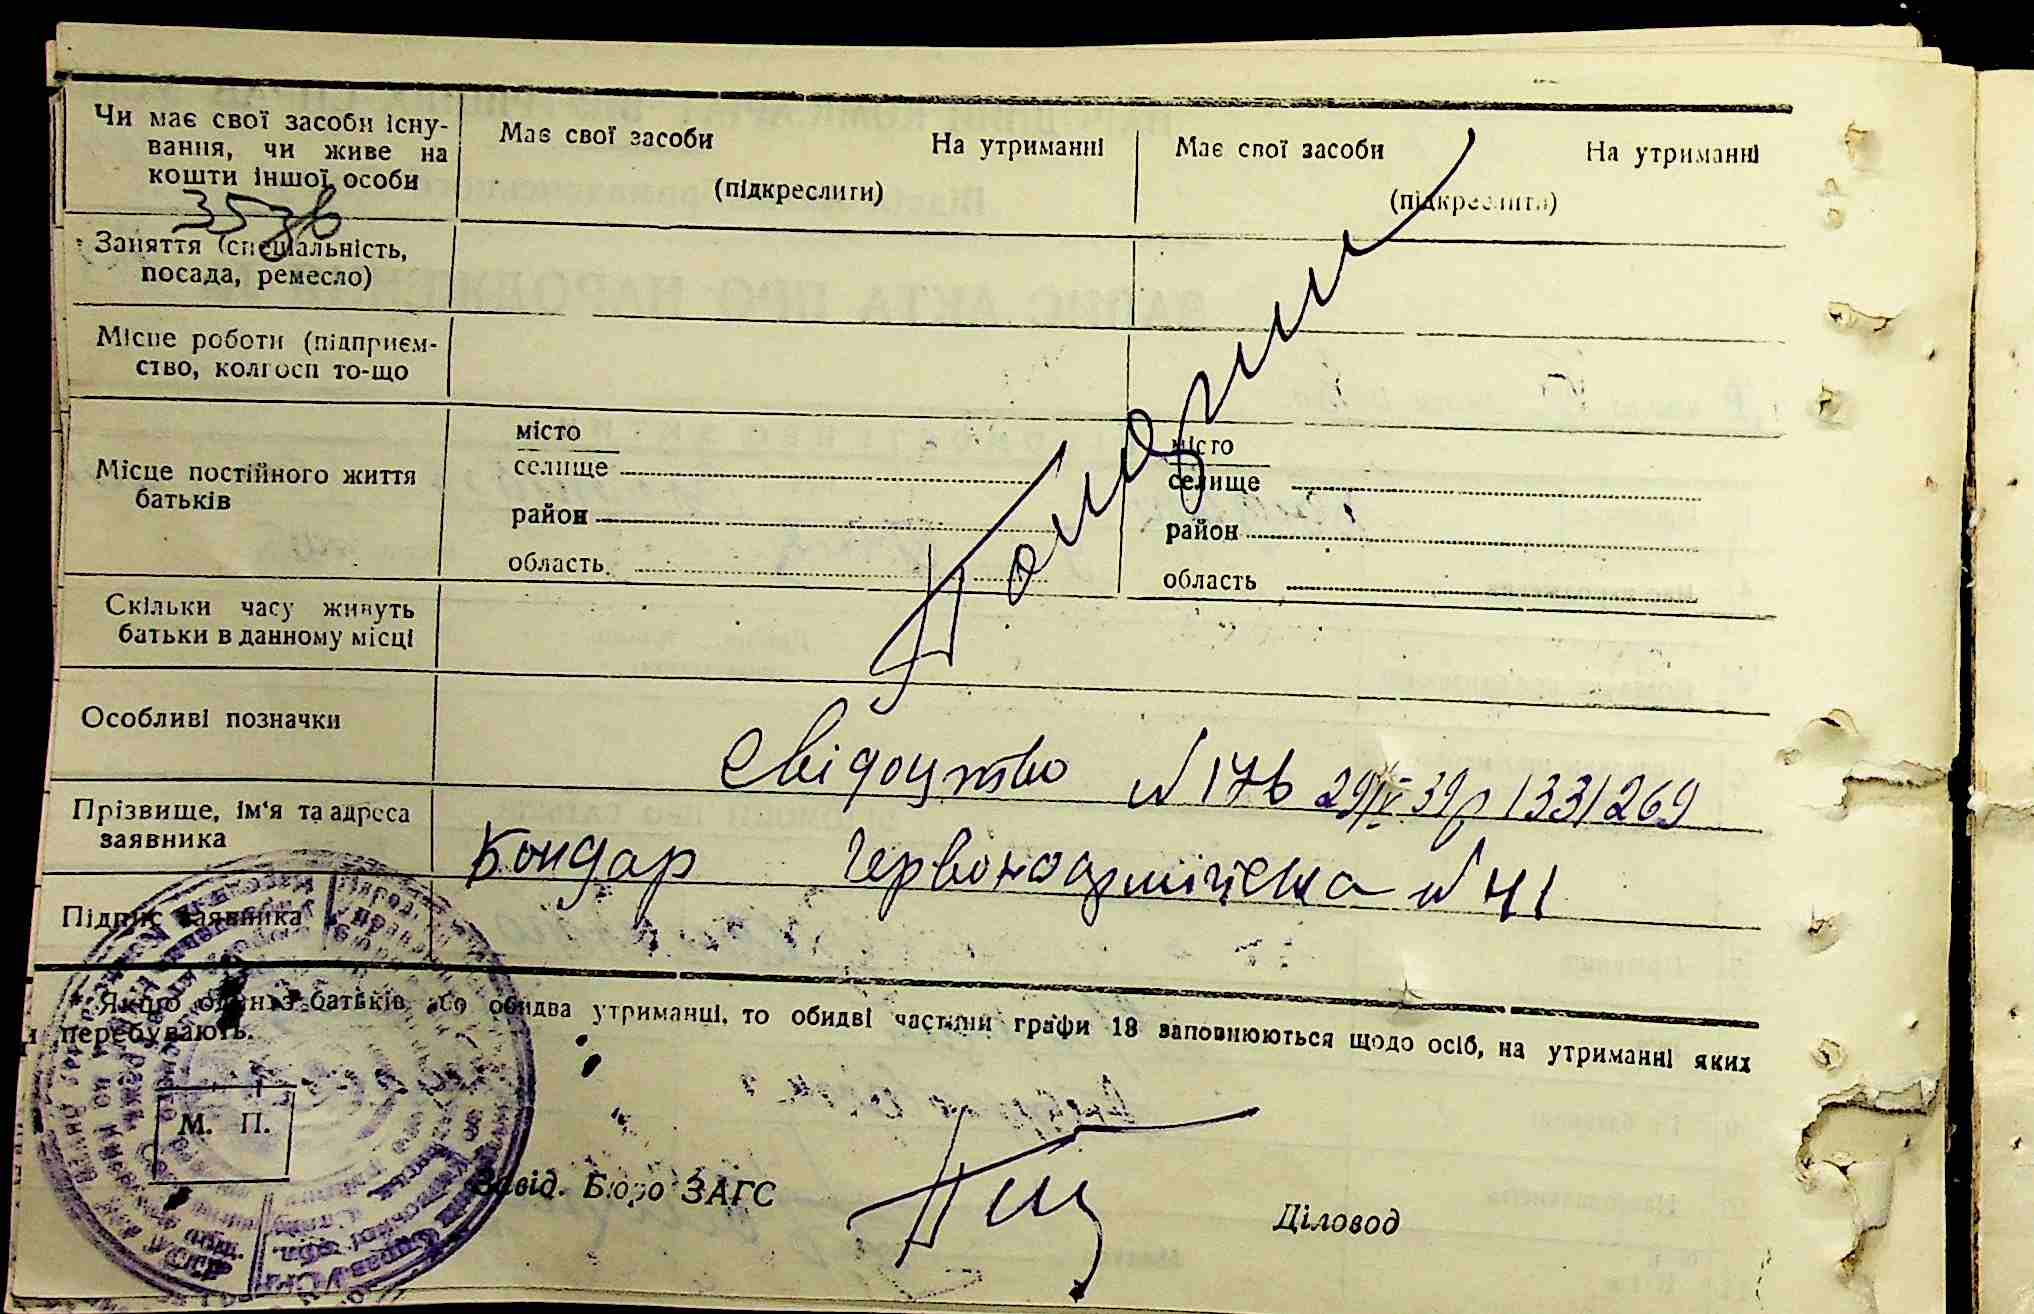 Чи має свої засоби існу-
вання, чи живе на
кошти іншої особи
Має свої засоби На утриманні
(підкреслити)
Має свої засоби На утриманні
(підкреслити)
Заняття (спеціальність,
посада, ремесло)
Місце роботи (підприєм-
ство, колгосп то-що
Місце постійного життя
батьків
місто
селище
район
область
місто
селище
район
область
Скільки часу живуть
батьки в данному місці
Особливі позначки
Свідоцтво № 176 29/IV-39р 133/269
Прізвище, ім'я та адреса
заявника
Кондар Червоноармійська № 41
Підпис заявника
Якщо один із батьків або обидва утриманці, то обидві частини графи 18 заповнюються щодо осіб, на утриманні яких
перебувають.
М. П.
Завід. Бюро ЗАГС
Діловод